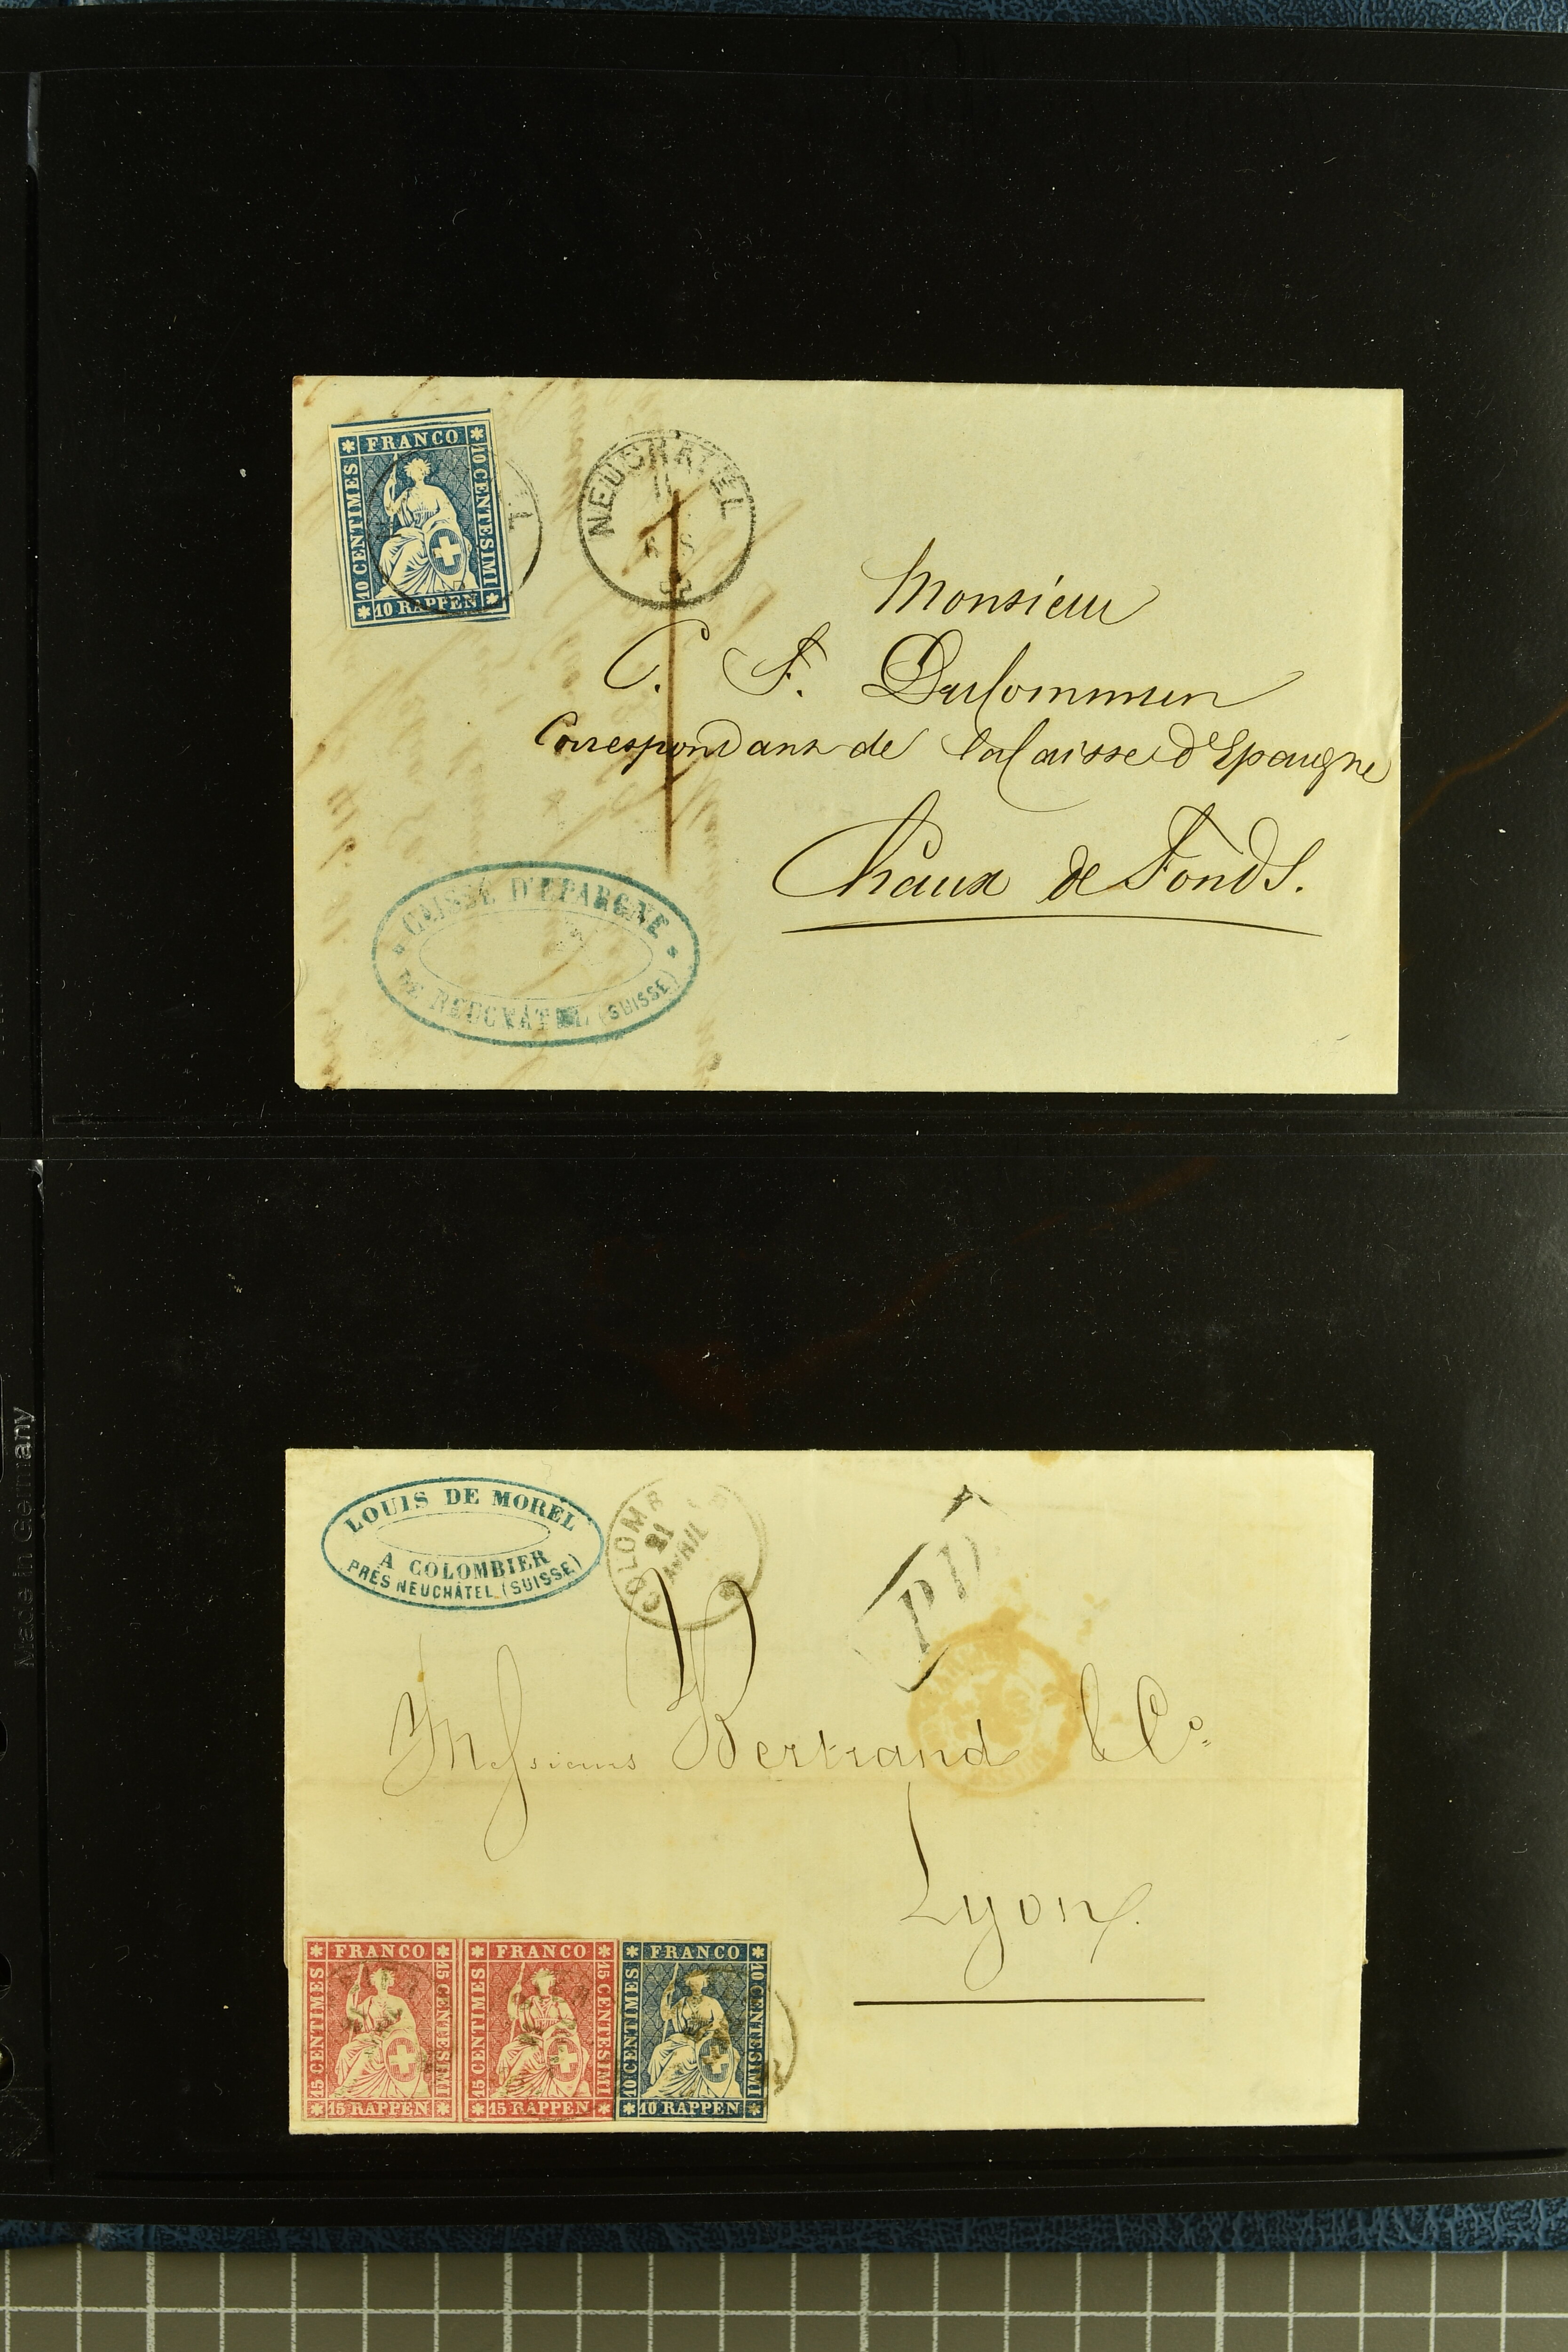 FRANCO
10 CENTIMES
10 CENTESIMI
10 RAPPEN
NEUCHATEL
Monsieur
C. F. DuCommun
Correspondant de la Caisse d'Epargne
Chaux de Fonds.
CAISSE D'EPARGNE
DE NEUCHÂTEL (SUISSE)
LOUIS DE MOREL
A COLOMBIER
PRÈS NEUCHÂTEL (SUISSE)
COLOMB
21
AVRIL
PD
Messieurs Bertrand & Co.
Lyon.
FRANCO
15 CENTIMES
15 CENTESIMI
15 RAPPEN
FRANCO
15 CENTIMES
15 CENTESIMI
15 RAPPEN
FRANCO
10 CENTIMES
10 CENTESIMI
10 RAPPEN
Made in Germany